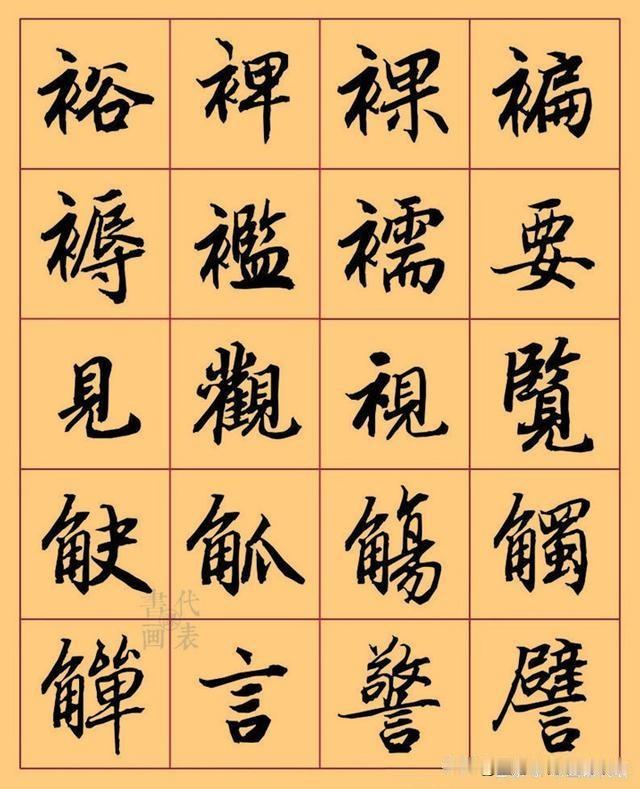 裕裨裸褊
褥襤襦要
見觀視覽
觖觚觴觸
觶言警譬
書代
画表